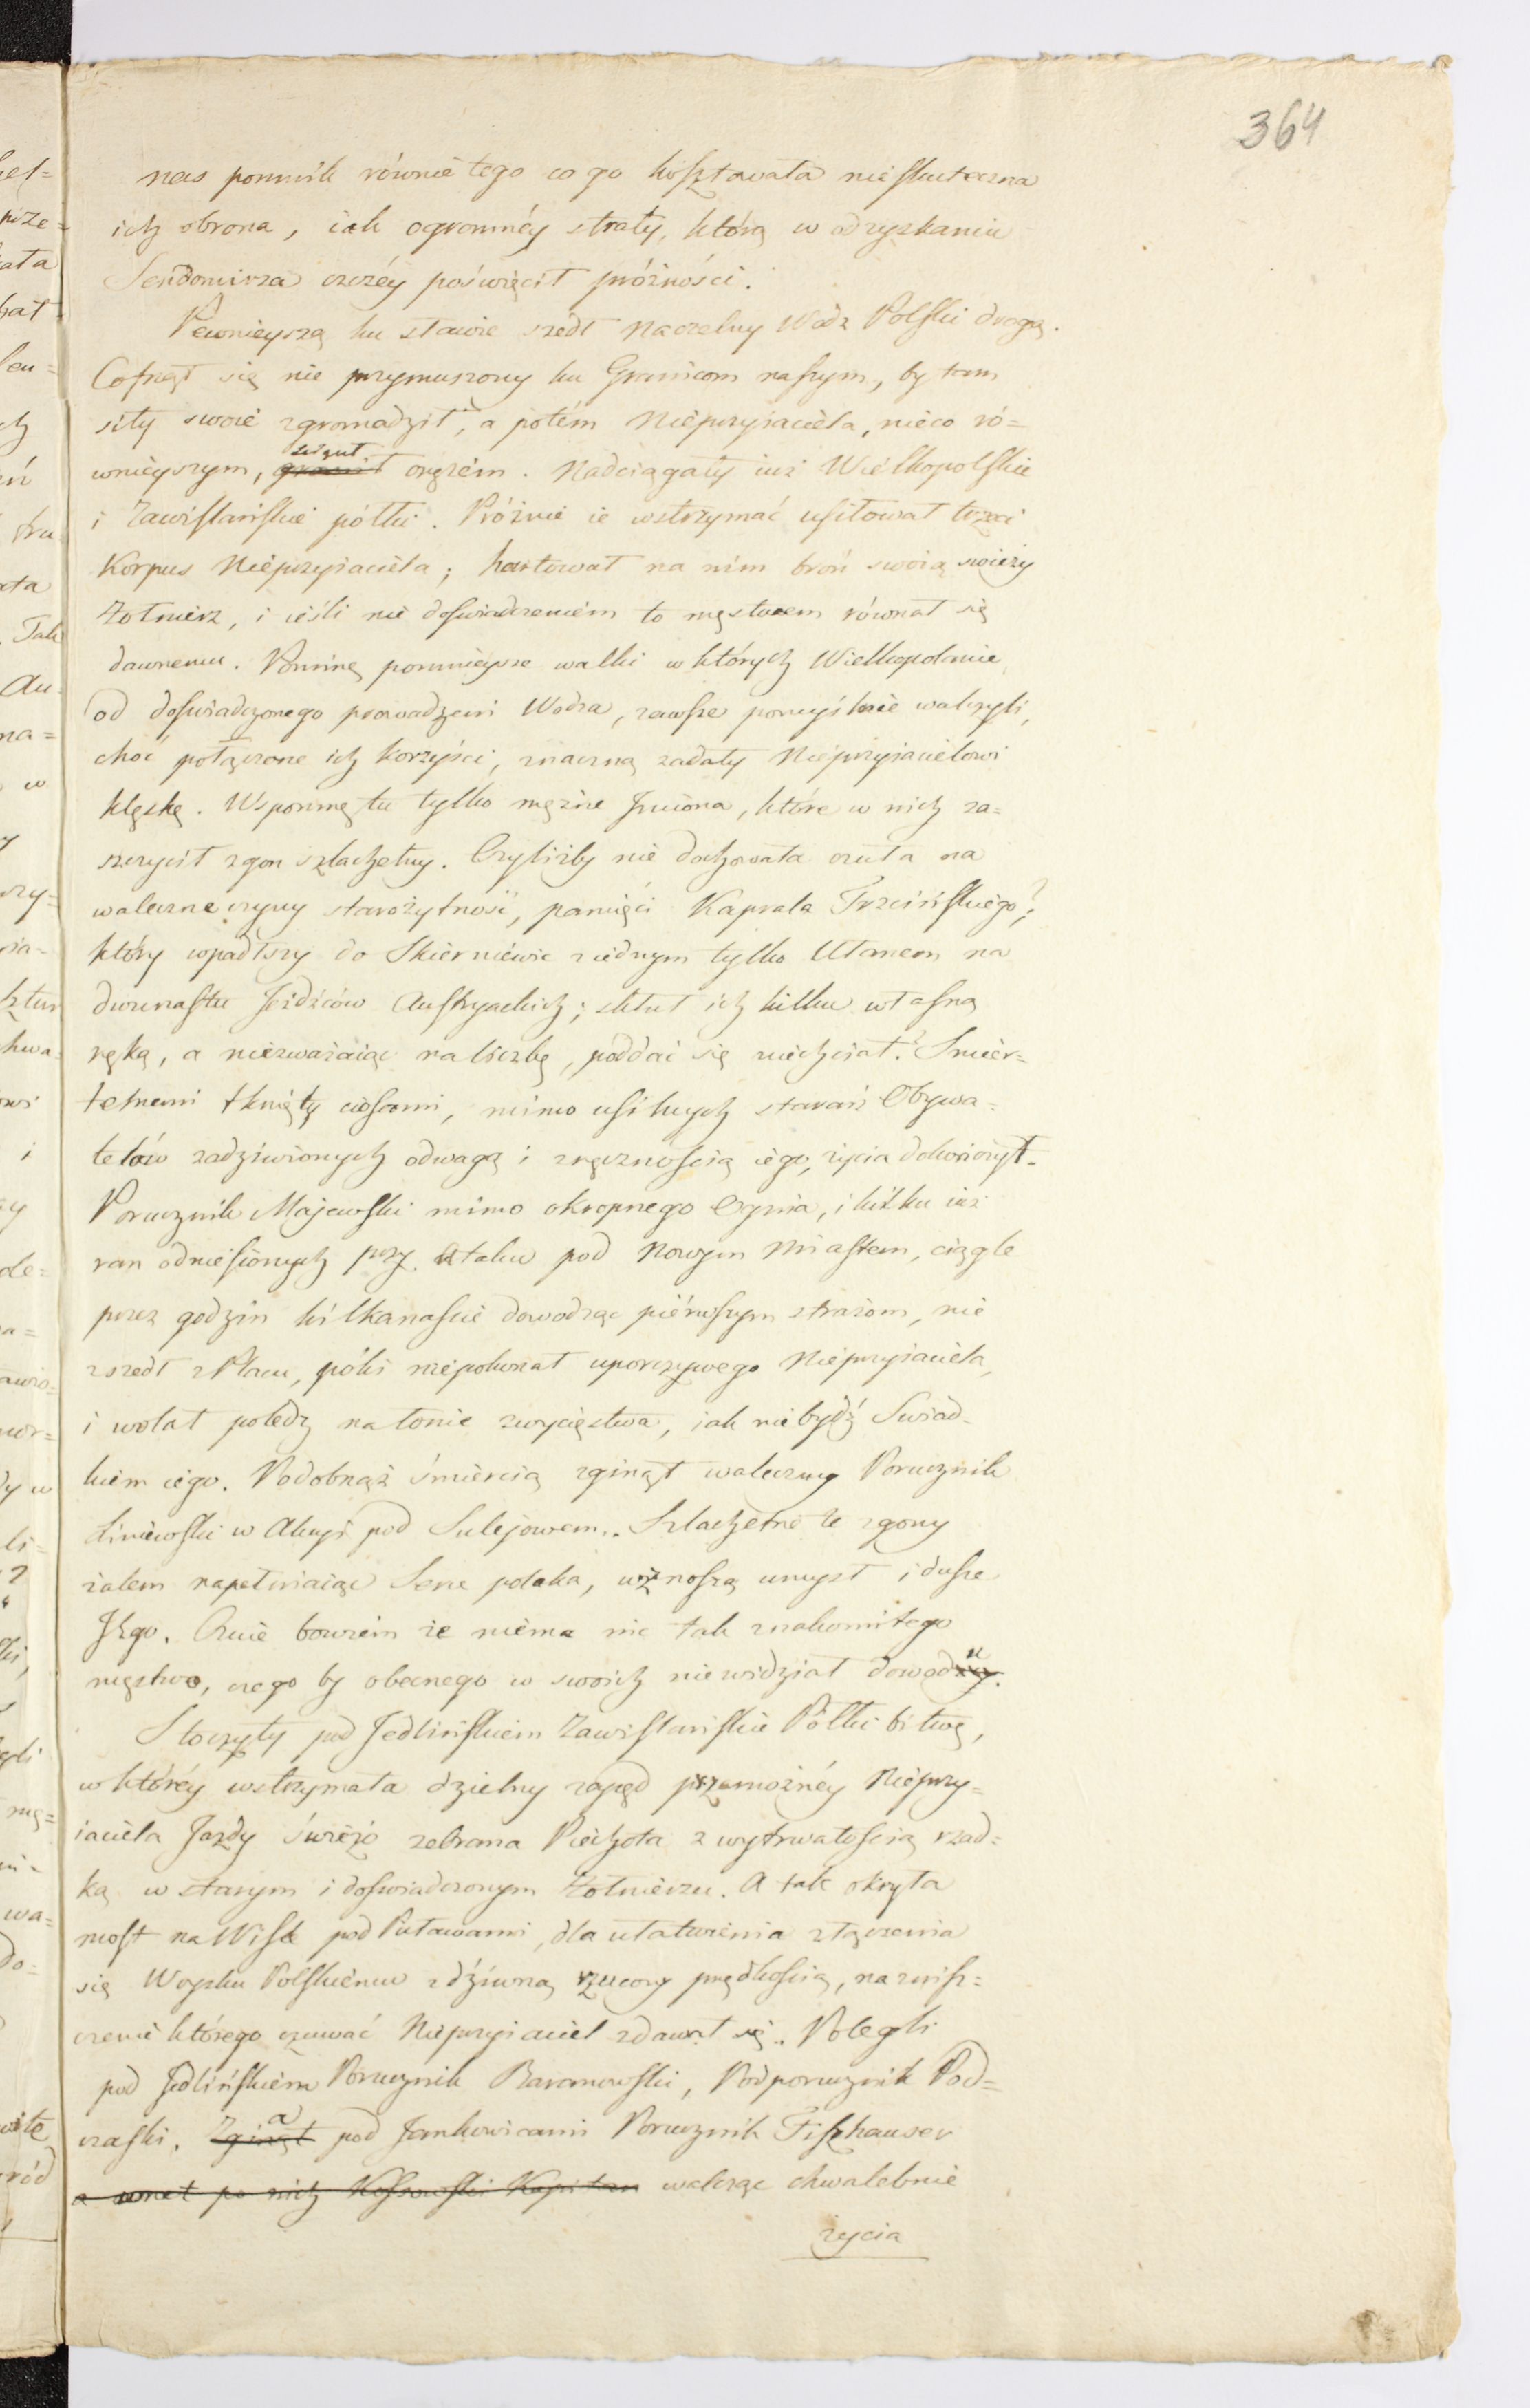 364
nas pomnik równie tego co go kosztowała nieskuteczna
ich obrona, iak ogromnéy straty, którą w odzyskaniu
Sendomirza czczéy poświęcił próżności.
Pewnieyszą ku sławie szedł Naczelny Wódz Polski drogą.
Cofnął się nie przymuszony ku Granicom naszym, by tam
siły swoie zgromadził, a potém Nieprzyiaciela, nieco ró=
wnieyszym, ścigał oręzém. Nadciągały iuż Wielkopolskie
i Zawislańskie półki. Próżnie ie wstrzymać usiłował trzeci
Korpus Nieprzyiaciela; hartował na nim broń swoią swieży
Żołnierz, i ieśli nie doświadczeniém to męstwem równał się
dawnemu. Pominę pomnieysze walki w których Wielkopolanie
od doswiadczonego prowadzeni Wodza, zawsze pomyślnie walczyli,
choć połączone ich korzyści, znaczną zadały Nieprzyiacielowi
klęskę. Wspomnę tu tylko mężne Jmiona, które w nich za=
szczycił zgon szlachetny. Czyliżby nie dochowała czuła na
waleczne czyny starożytność, pamięci Kaprala Trzcińskiego?,
który wpadłszy do Skierniewic z iednym tylko Ułanem na
dwunastu Jeźdźców Austryackich; skłuł ich kilku własną
ręką, a niezważaiąc na liczbę, poddać się niechciał. Smier=
telnemi tknięty ciosami, mimo usilnych starań Obywa=
telów zadziwionych odwagą i zręcznością iego, życia dokończył.
Porucznik Majewski mimo okropnego Ognia, i kilku iuż
ran odniesionych przy ataku pod Nowym Miastem, ciągle
przez godzin kilkanaście dowodząc piérwszym strażom, nie
zszedł z Placu, póki niepokonał uporczywego Nieprzyiaciela,
i wolał poledz na łonie zwycięstwa, iak niebydź Swiad=
kiem iego. Podobnąż śmiercią zginął waleczny Porucznik
Liniewski w Akcyi pod Sulejowem. Szlachetne te zgony
żalem napełniaiąc Serce polaka, wznoszą umysł i dusze
Jego. Czuie bowiem że niéma nic tak znakomitego
męstwo, czego by obecnego w swoich niewidział dowodu.
Stoczyły pod Jedlińskiem Zawislańskie Półki bitwę,
w któréy wstrzymała dzielny zapęd przemożnéy Nieprzy=
iaciela Jazdy świeżo zebrana Piechota z wytrwałością rzad=
ką w starym i doświadczonym Żołnierzu. A tak okryła
most na Wiśle pod Puławami, dla ułatwienia złączenia
się Woysku Polskiému zdziwną rzucony prędkością, na znisz=
czenie którego czuwać Nieprzyiaciel zdawał się. Polegli
pod Jedlińskiém Porucznik Baranowski, Podporucznik Pod=
czaski. Zginął a pod Jankowicami Porucznik Fiszhauser
a wnet po nich Kossowski Kapitan walcząc chwalebnie
życia